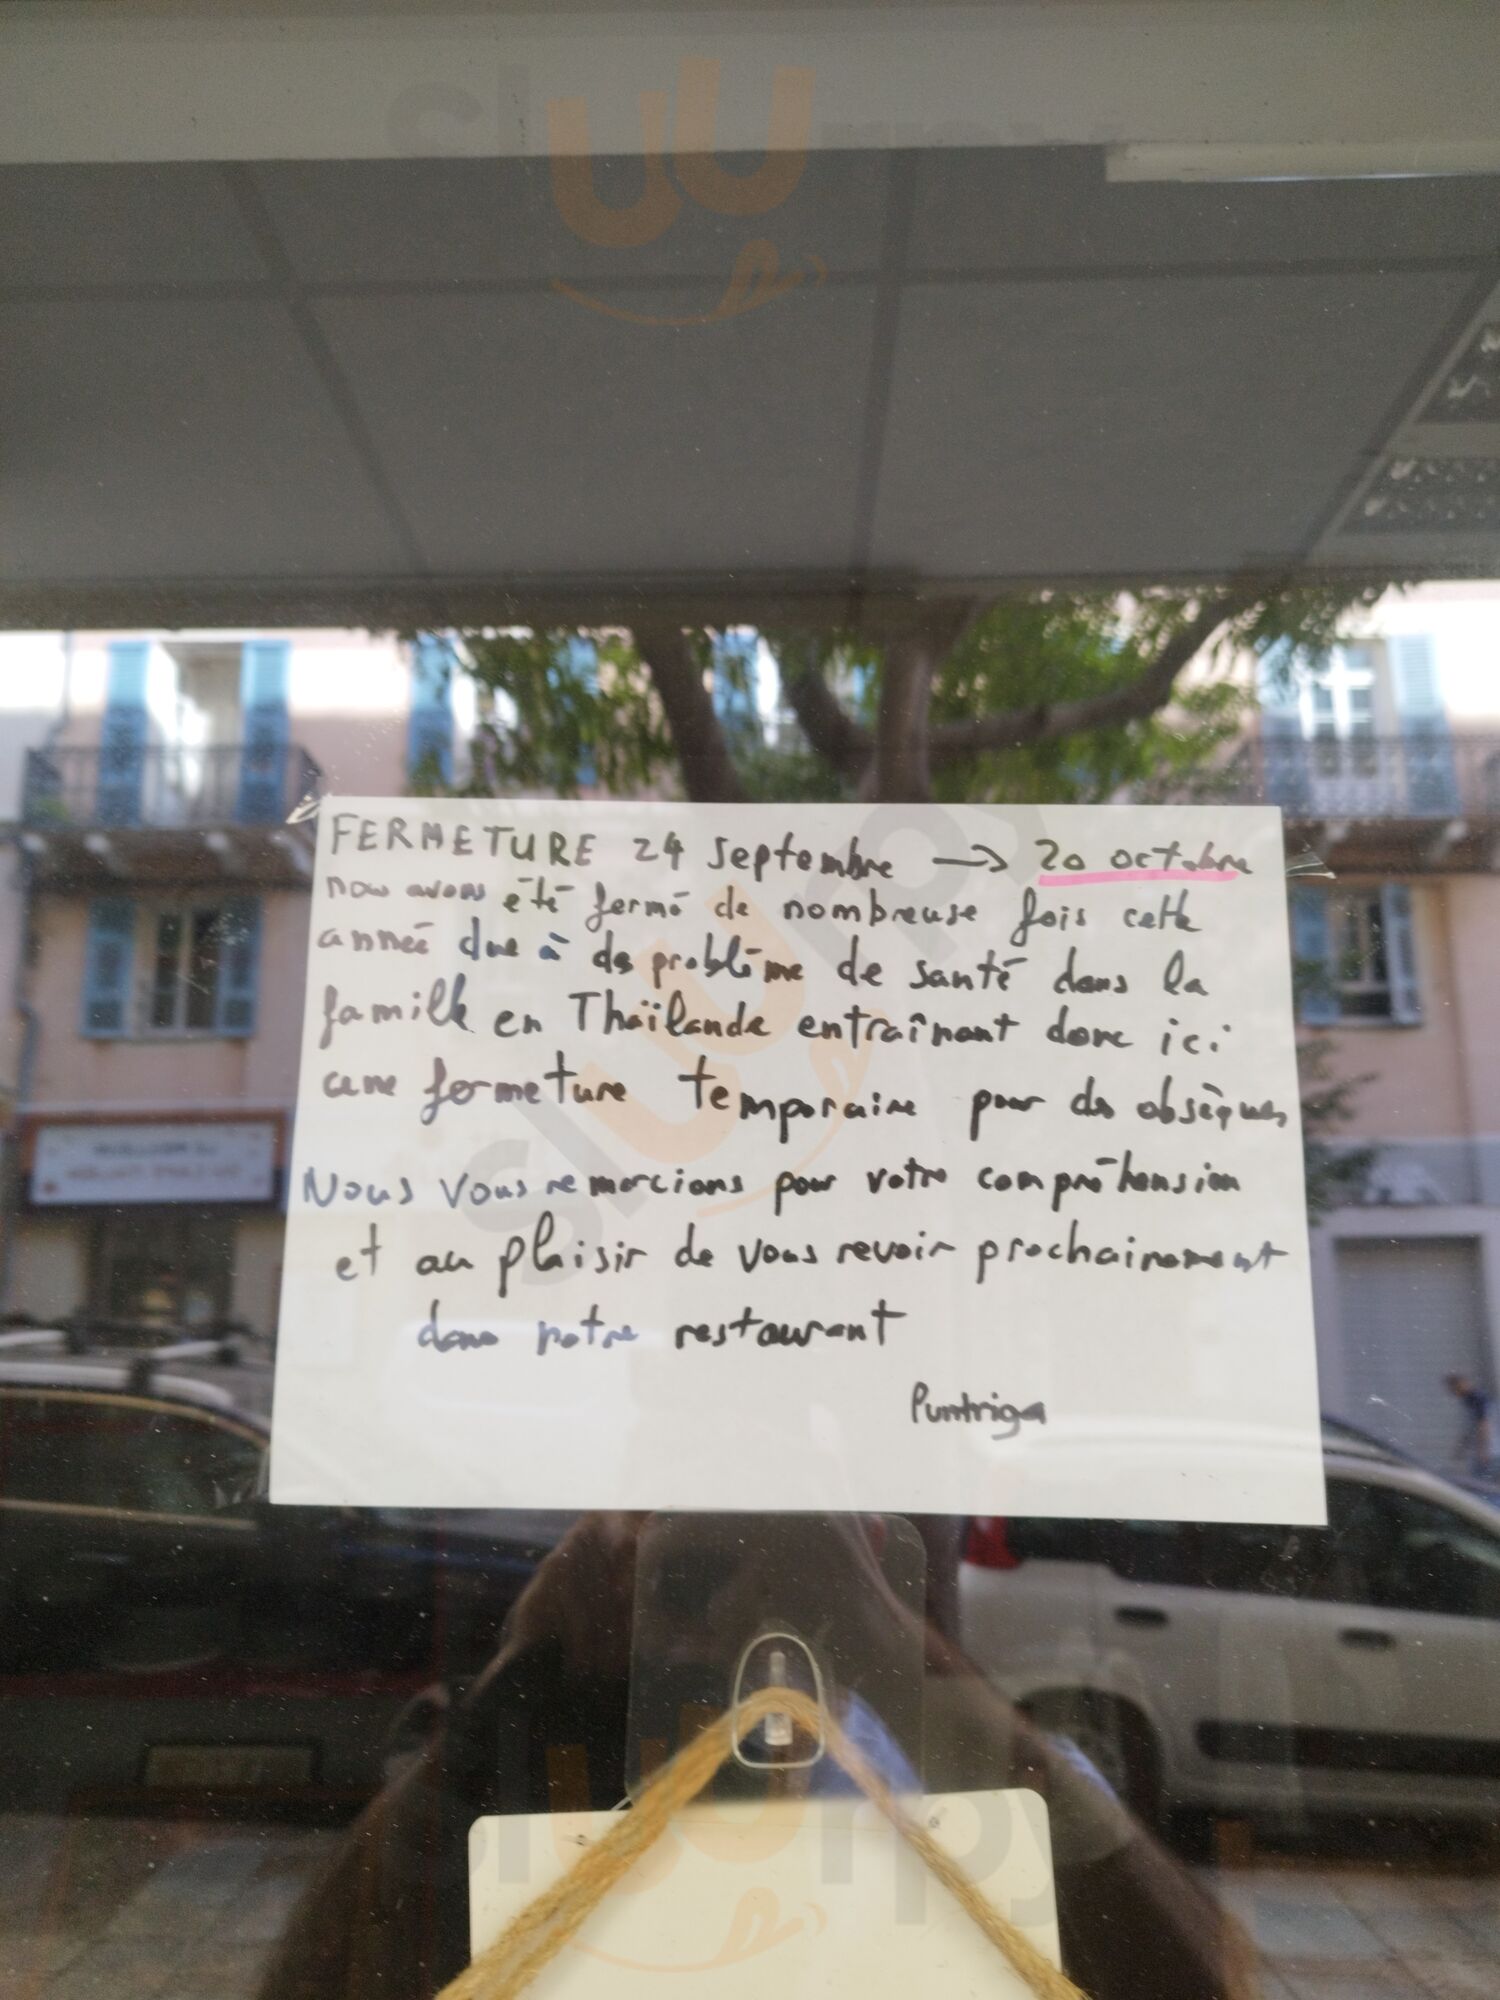 FERMETURE 24 septembre → 20 octobre
nous avons été fermé de nombreuse fois cette
année due à des problème de santé dans la
famille en Thaïlande entraînant donc ici
une fermeture temporaire pour des obsèques
Nous vous remercions pour votre compréhension
et au plaisir de vous revoir prochainement
dans notre restaurant
Puntriga
sluurpy
sluurpy
sluurpy